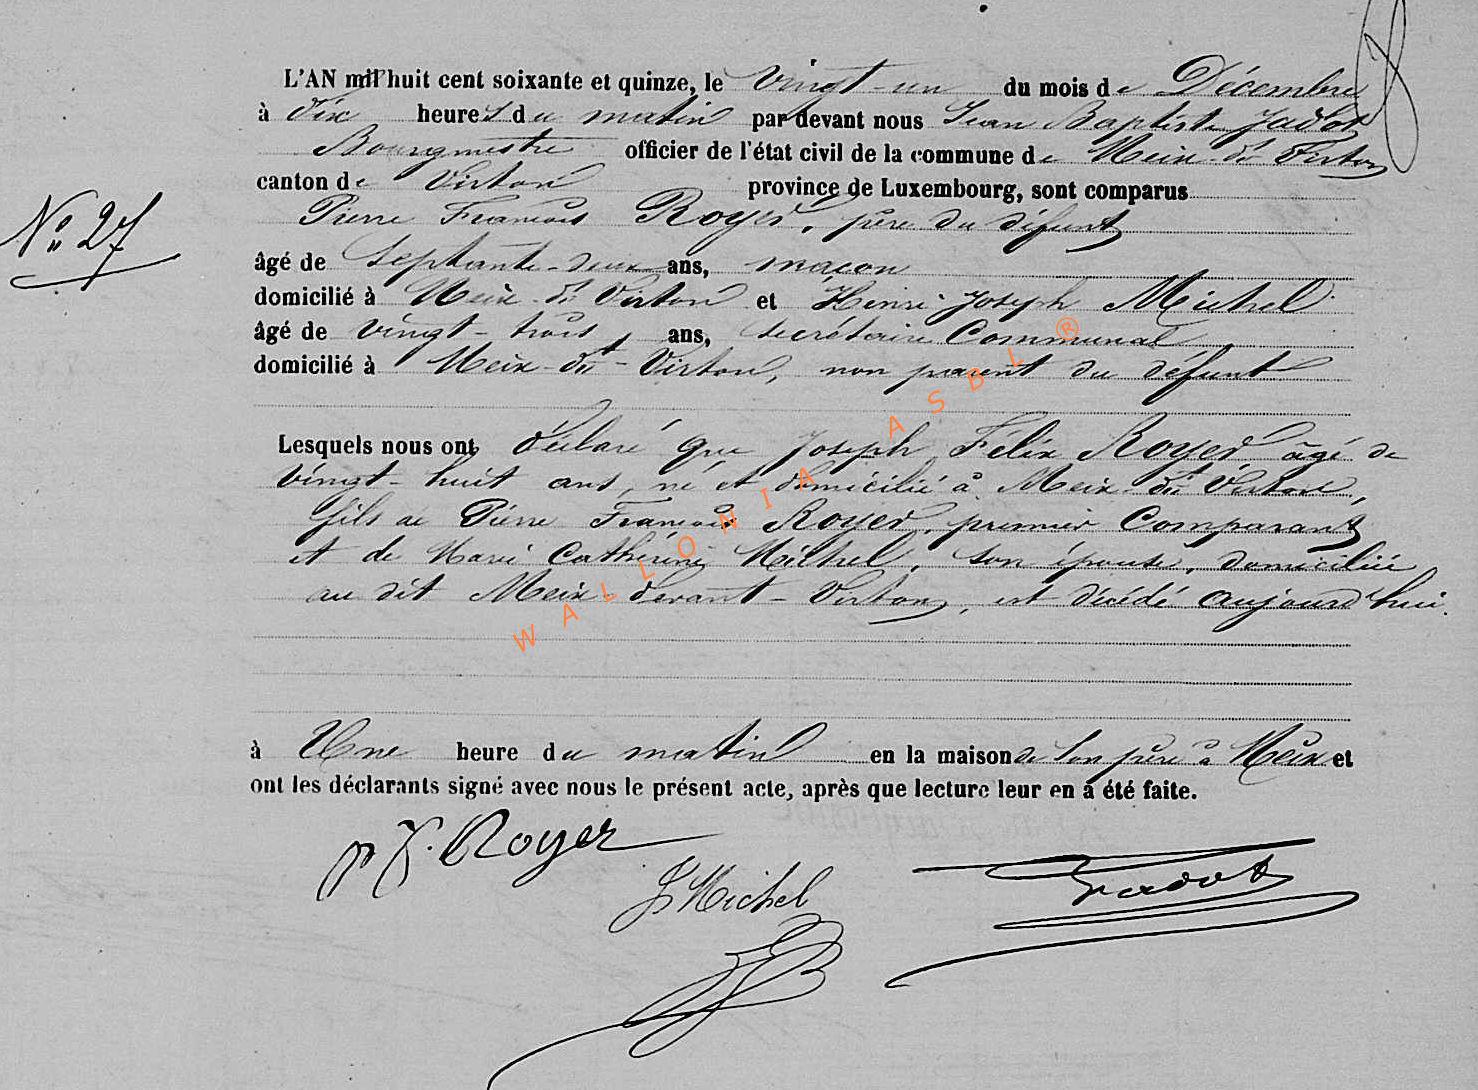 L'AN mil huit cent soixante et quinze, le vingt-un du mois de Décembre
à dix heures du matin par devant nous Jean Baptiste Jadot
Bourgmestre officier de l'état civil de la commune de Meix-dt Virton
canton de Virton province de Luxembourg, sont comparus
Nº 27
Pierre François Royer, père du défunt
âgé de septante-deux ans, maçon
domicilié à Meix-dt Virton et Henri Joseph Michel
âgé de vingt-trois ans, secrétaire Communal
domicilié à Meix-dt-Virton, non parent du défunt
Lesquels nous ont déclaré que Joseph Felix Royer âgé de
vingt-huit ans, né et domicilié à Meix-dt Virton,
fils de Pierre François Royer, premier Comparant
et de Marie Catherine Michel, son épouse, domiciliée
au dit Meix-devant-Virton, est décédé aujourd'hui.
à Une heure du matin en la maison de son père à Meix et
ont les déclarants signé avec nous le présent acte, après que lecture leur en a été faite.
p f. Royer
Michel
Jadot
WALLONIA ASBL ®